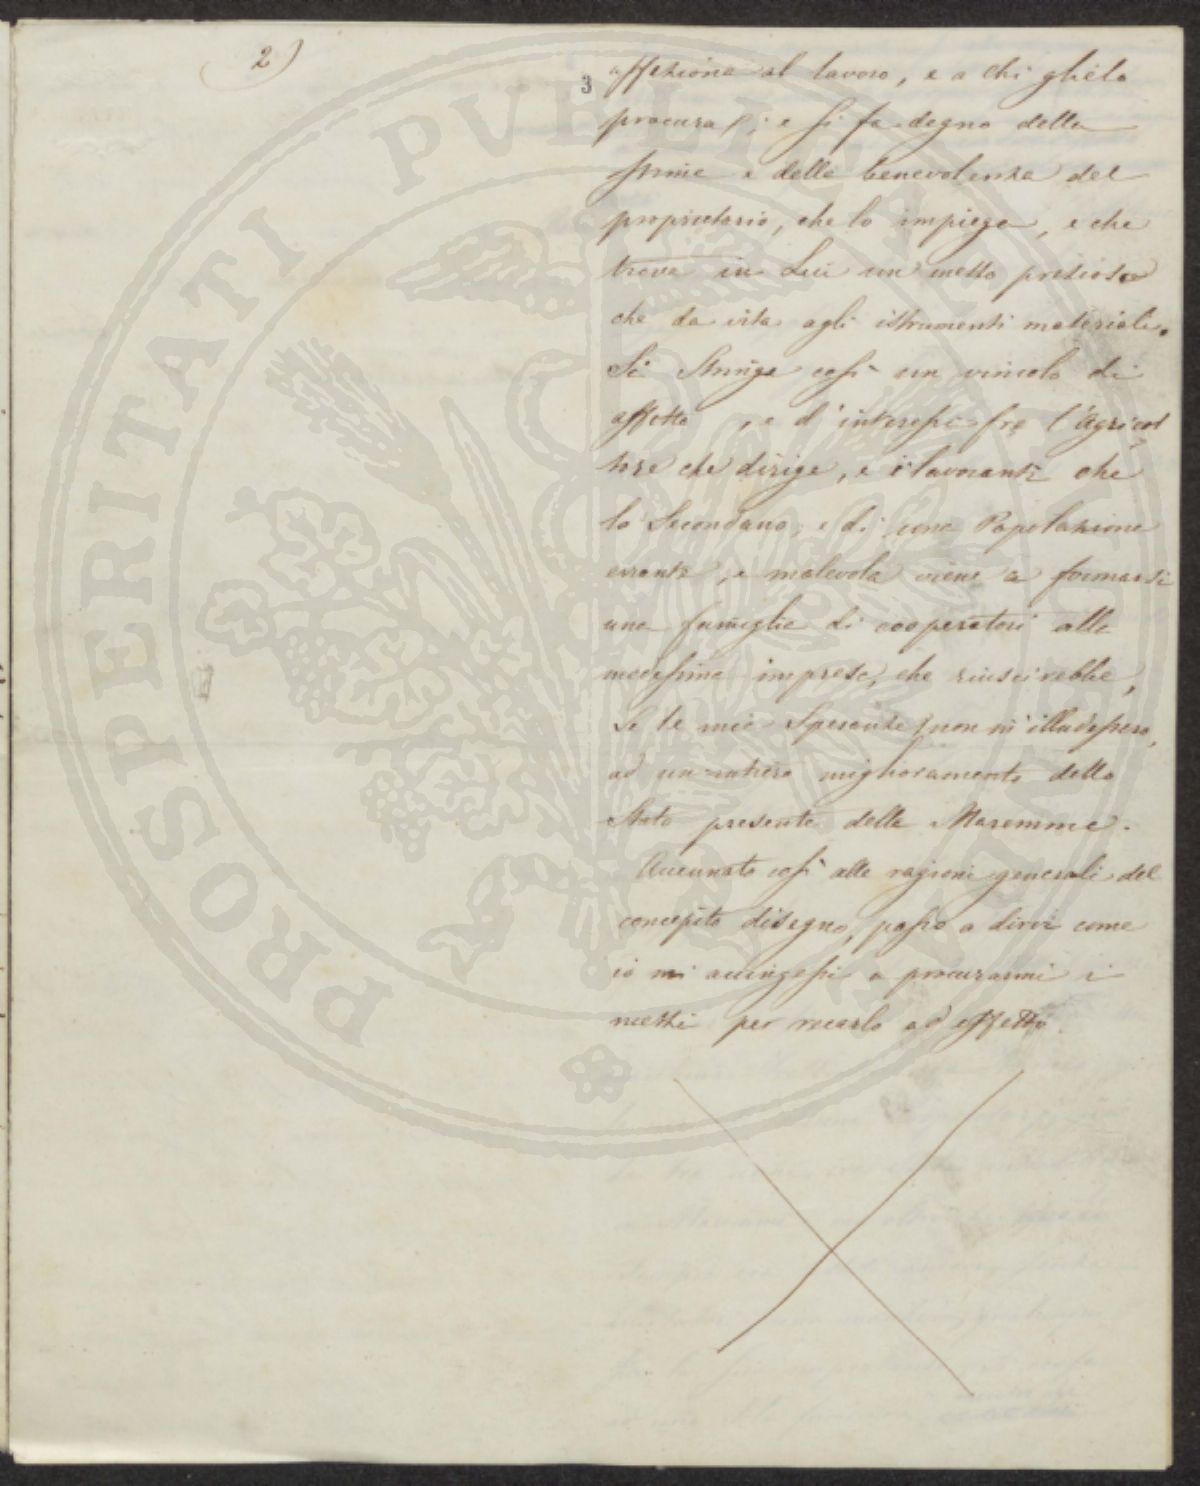 2)
3
affezione al lavoro, e a chi glielo
procura; e si fa degno della
stima e della benevolenza del
proprietario, che lo impiega, e che
trova in Lui un mezzo prezioso
che da vita agli istrumenti materiali.
Si stringe così un vincolo di
affetto, e d'interessi fra l'Agricol
tore che dirige, e i lavoranti che
lo Secondano; e di una Popolazione
errante, e malevola viene a formarsi
una famiglia di cooperatori alla
medesima impresa, che riuscirebbe,
Se le mie Speranze non m'illudessero,
ad un intiero miglioramento dello
Stato presente della Maremma.
Accennato così alle ragioni generali del
concepito disegno, passo a dirvi come
io mi accingessi a procurarmi i
mezzi per recarlo ad effetto.
PROSPERITATI PVBLICAE